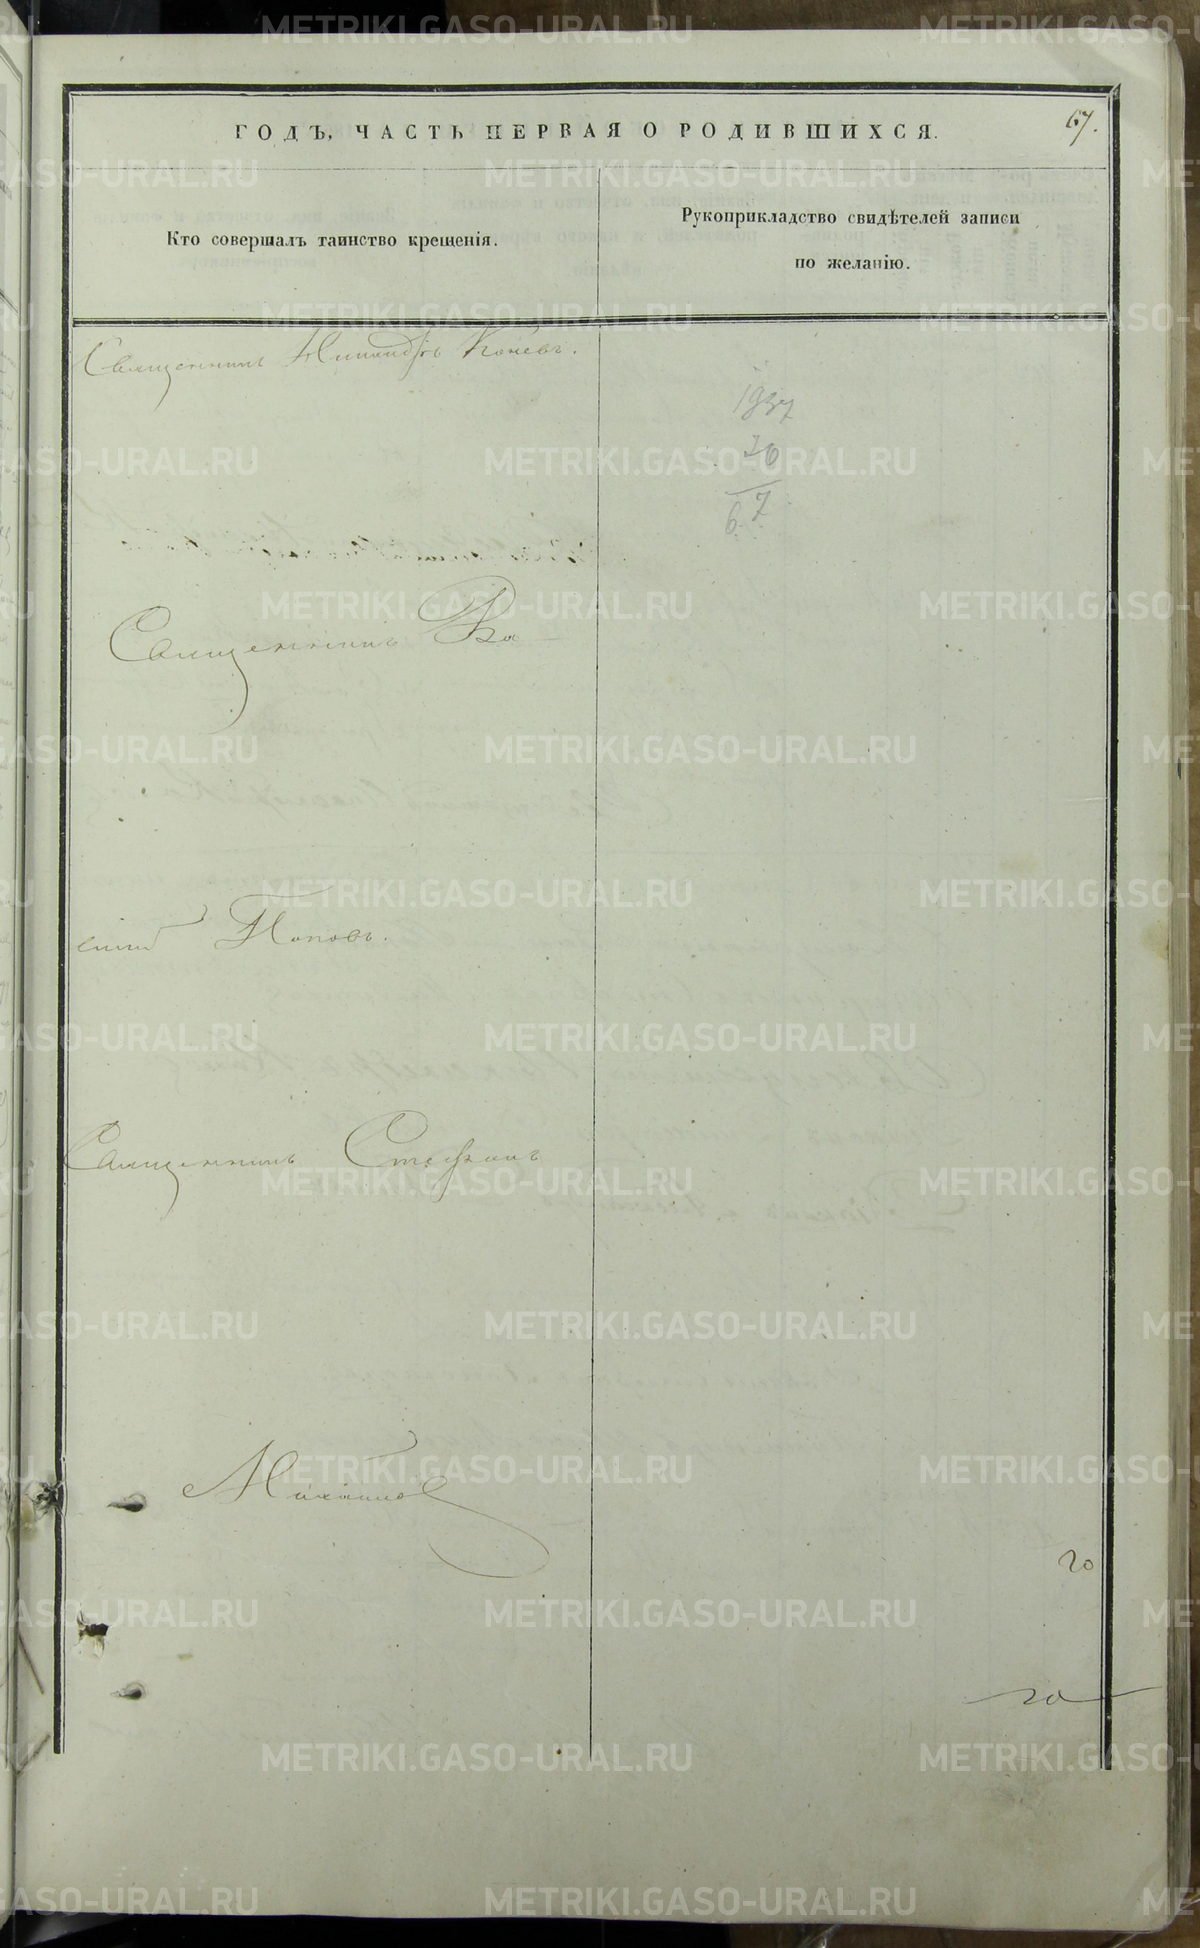 ГОДЪ, ЧАСТЬ ПЕРВАЯ О РОДИВШИХСЯ.
67.
Кто совершалъ таинство крещенія.
Рукоприкладство свидѣтелей записи
по желанію.
Священникъ Никандръ Коневъ.
1937
70
67
Священникъ Ва
силій Поповъ.
Священникъ Стефанъ
Михайлов
20
20
METRIKI.GASO-URAL.RU